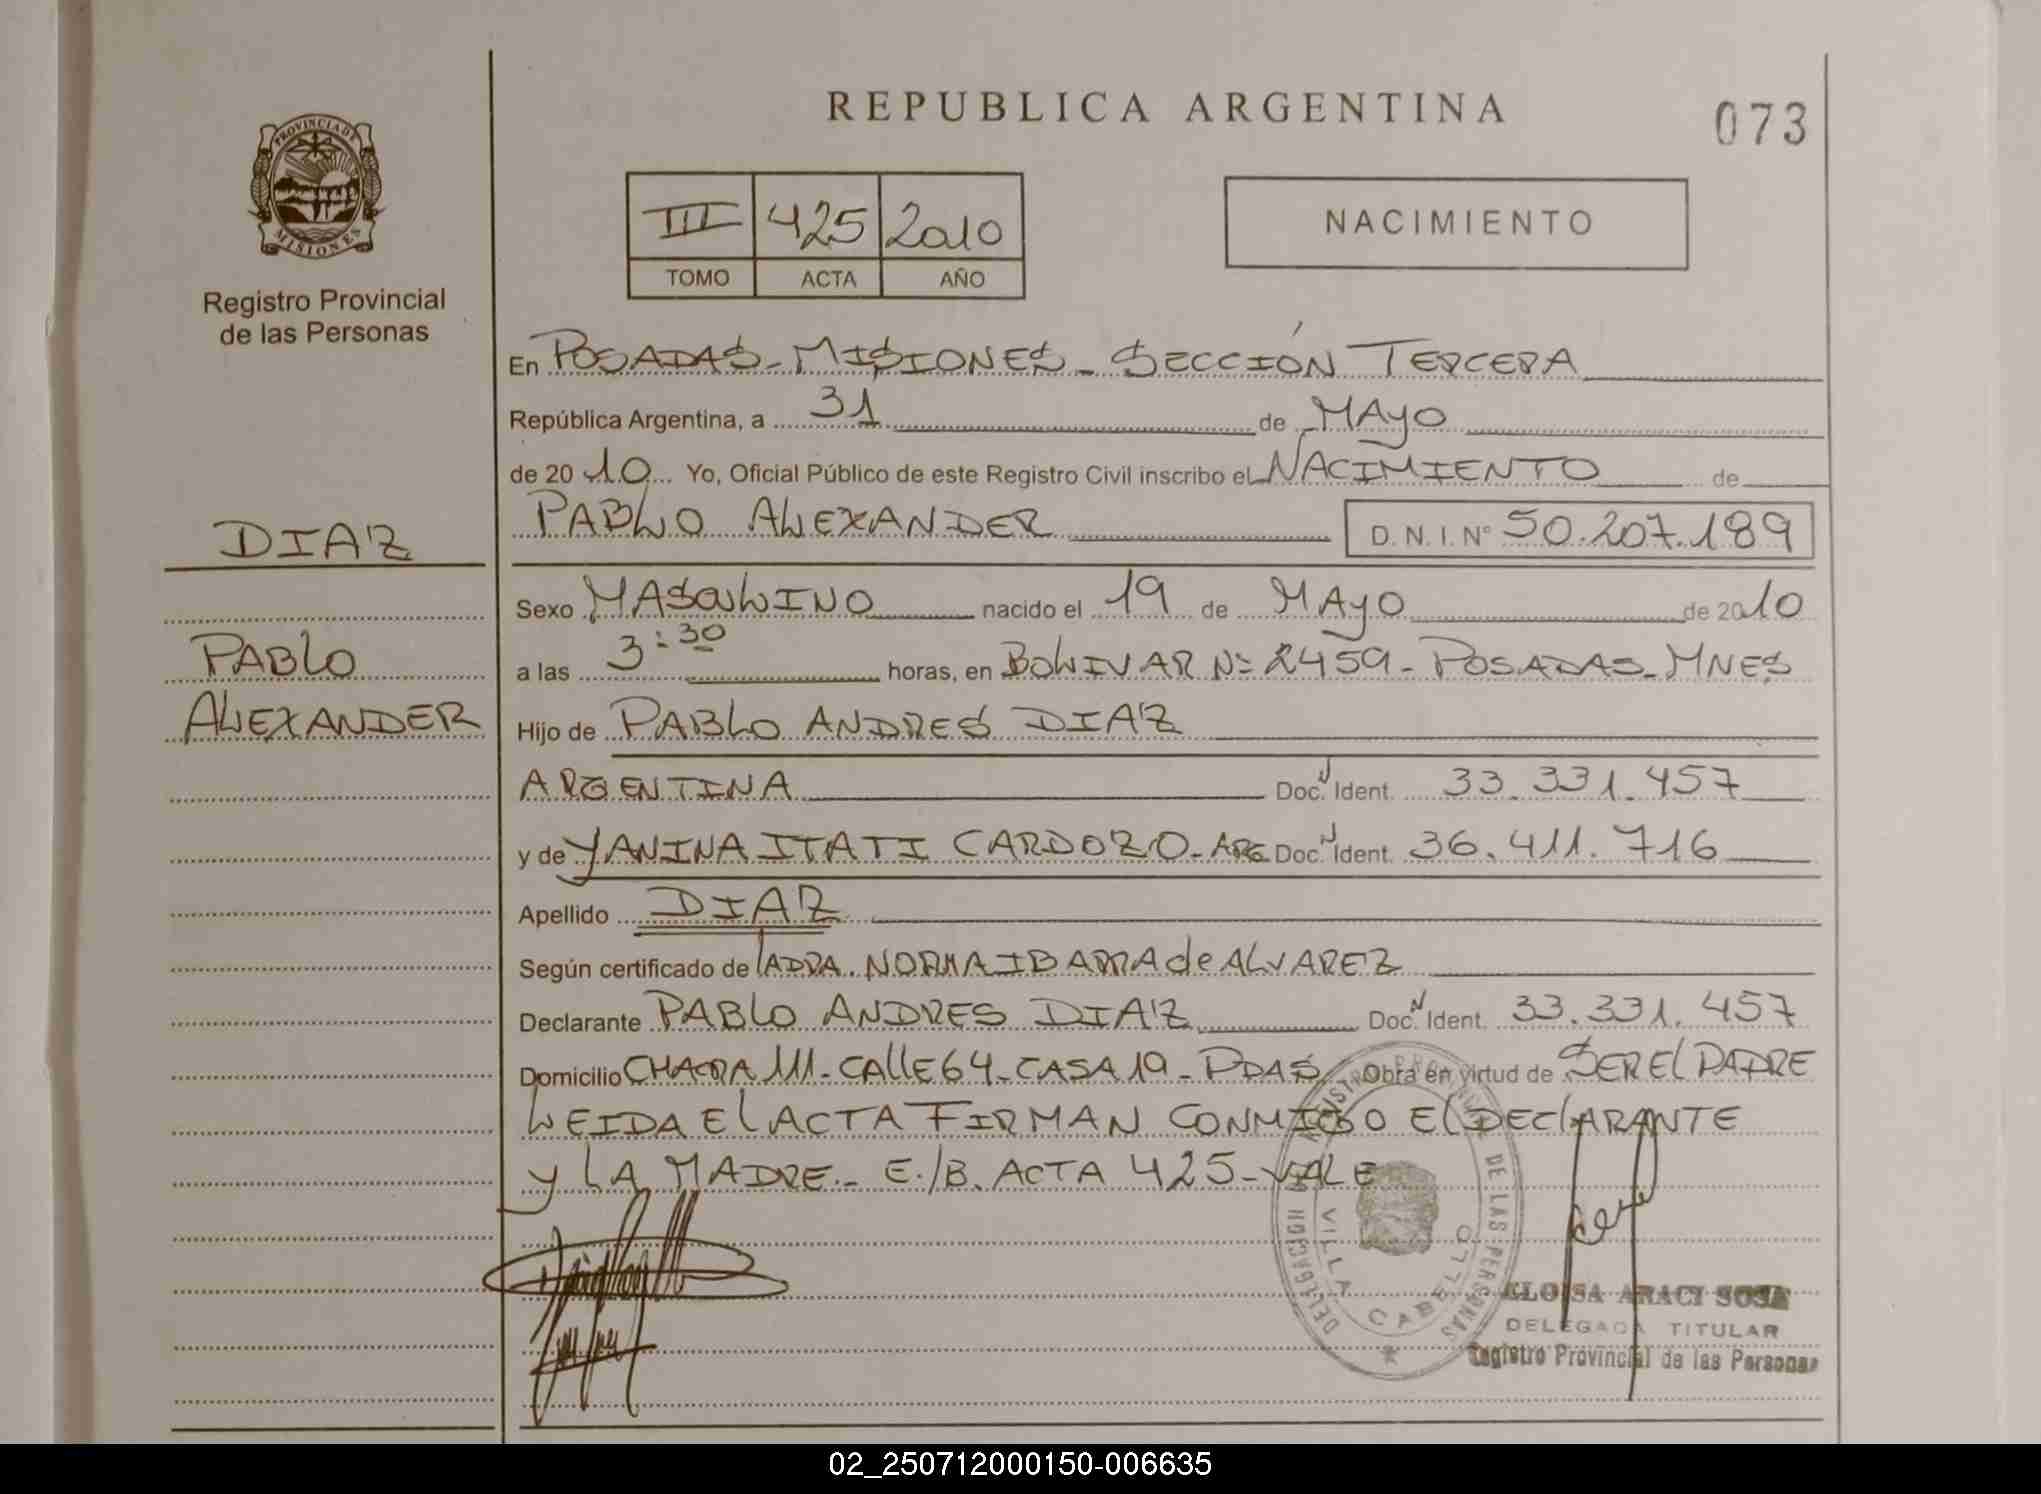 REPUBLICA ARGENTINA
073
PROVINCIA DE MISIONES
Registro Provincial
de las Personas
III 425 2010
TOMO ACTA AÑO
NACIMIENTO
En POSADAS - MISIONES - SECCIÓN TERCERA
República Argentina, a 31 de MAYO
de 2010 Yo, Oficial Público de este Registro Civil inscribo el NACIMIENTO de
PABLO ALEXANDER D. N. I. N° 50.207.189
DIAZ
Sexo MASCULINO nacido el 19 de MAYO de 2010
PABLO
a las 3:30 horas, en BOLIVAR Nº 2459 - POSADAS - MNES
ALEXANDER
Hijo de PABLO ANDRES DIAZ
ARGENTINA Doc. Ident. 33.331.457
y de YANINA ITATI CARDOZO - ARG Doc. Ident. 36.411.716
Apellido DIAZ
Según certificado de LA DRA. NORMA IBARRA de ALVAREZ
Declarante PABLO ANDRES DIAZ Doc. Ident. 33.331.457
Domicilio CHACRA 111 - CALLE 64 - CASA 19 - PDAS Obra en virtud de SER EL PADRE
LEIDA EL ACTA FIRMAN CONMIGO EL DECLARANTE
Y LA MADRE - E./B. ACTA 425 - VALE
DELEGACION REGISTRO PROVINCIAL DE LAS PERSONAS
VILLA CABELLO
ELOISA ARACI SOSA
DELEGADA TITULAR
Registro Provincial de las Personas
02_250712000150-006635